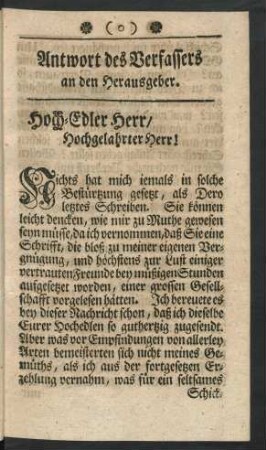 ( o )
Antwort des Verfassers
an den Herausgeber.
Hoch-Edler Herr/
Hochgelahrter Herr!
Nichts hat mich jemals in solche
Bestürtzung gesetzt, als Dero
letztes Schreiben. Sie können
leicht dencken, wie mir zu Muthe gewesen
seyn müsse, da ich vernommen, daß Sie eine
Schrifft, die bloß zu meiner eigenen Ver-
gnügung, und höchstens zur Lust einiger
vertrauten Freunde bey müßigen Stunden
aufgesetzet worden, einer grossen Gesell-
schafft vorgelesen hätten. Ich bereuete es
bey dieser Nachricht schon, daß ich dieselbe
Eurer Hochedlen so guthertzig zugesendt.
Aber was vor Empfindungen von allerley
Arten bemeisterten sich nicht meines Ge-
müths, als ich aus der fortgesetzen Er-
zehlung vernahm, was für ein seltsames
Schick-